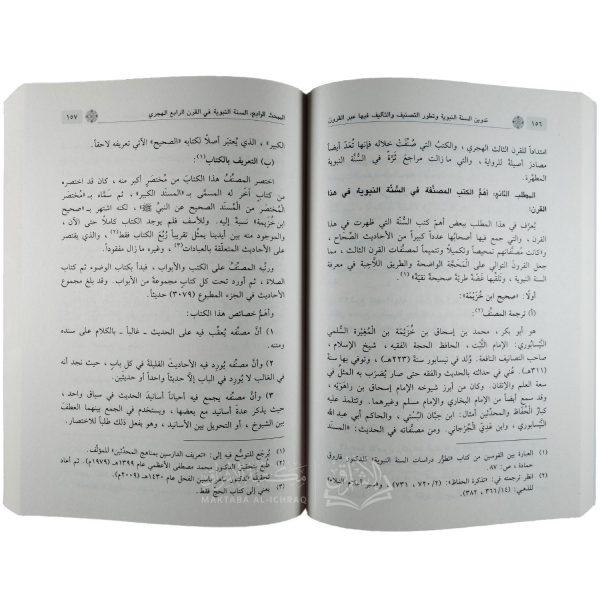 ١٥٦
تدوين السنة النبوية وتطور التصنيف والتأليف فيها عبر القرون
امتداداً للقرن الثالث الهجري ، والكتبُ التي صُنِّفَت خلاله فإنها تُعَدّ أيضاً
مصادرَ أصيلةً للرواية ، والتي ما زالت مراجع ثَرَّة في السُّنَّة النبوية
المطهَّرة.
المطلب الثاني: أهمُّ الكتب المصنَّفة في السُّنَّة النبوية في هذا
القرن:
يُعرَّف في هذا المطلب ببعض أهمّ كتب السُّنَّة التي ظهرت في هذا
القرن ، والتي جمع فيها أصحابُها عدداً كبيراً من الأحاديث الصِّحَاح ،
وكانت مصنَّفاتهم تمحيصاً وتكميلاً وتتميماً لمصنَّفات القرن الثالث ، مما
جعل القرونَ التوالي على المَحَجَّة الواضحة والطريق اللَّاحبة في معرفة
السنة النبوية ، وتلقّفها غَضَّة طريَّة صحيحة نقيَّة»(١)
أولًا: «صحيح ابن خُزَيْمَة»:
(أ) ترجمة المصنِّف(٢):
هو أبو بكر ، محمد بن إسحاق بن خُزَيْمَة بن المُغِيْرة السُّلَمي
النَّيسابُوري: الإمام الثَّبْت ، الحافظ الحجة الفقيه ، شيخ الإسلام ،
صاحب التصانيف النافعة. وُلد في نيسابور سنة (٢٢٣هـ) ، وتوفي بها سنة
(٣١١هـ). عُني في حداثته بالحديث والفقه حتى صار يُضرَب به المثل في
سعة العلم والإتقان. وكان من أبرز شيوخه الإمام إسحاق بن رَاهَوَيْه ،
وقد سمع أيضاً من الإمام البخاري والإمام مسلم وغيرهما. وتتلمذ عليه
كبارُ الحفّاظ والمحدِّثين أمثال: ابن حِبَّان البُسْتي ، والحاكم أبي عبد الله
النَّيسابوري ، وابن عَدِيّ الجُرْجاني. ومن مصنَّفاته في الحديث: «المسند
(١) العبارة بين القوسين من كتاب «تطوُّر دراسات السنة النبوية» للدكتور فاروق
حمادة ، ص: ٨٧.
(٢) انظر ترجمته في: «تذكرة الحفاظ» (٢/٧٢٠ ، ٧٣١) ، و«سير أعلام النبلاء»
للذهبي: (١٤/٣٦٦ ، ٣٨٢).
المبحث الرابع: السنة النبوية في القرن الرابع الهجري
١٥٧
الكبير» ، الذي يُعتَبر أصلًا لكتابه «الصحيح» الآتي تعريفه لاحقاً.
(ب) التعريف بالكتاب(١):
اختصر المصنِّفُ هذا الكتابَ من مُختَصرٍ أكبر منه ، كان قد اختصره
من كتابٍ آخَر له المسمَّى بـ «المسنَد الكبير» ، ثم سمَّاه بـ «مُختَصر
المُختَصر من المُسنَد الصحيح عن النبيِّ ﷺ» ، لكنه اشتهر بـ «صحيح
ابن خُزَيْمة» نسبةً إليه. وللأسف فلم يوجد الكتاب كاملًا حتى الآن ،
والموجود منه بين أيدينا يمثِّل تقريباً رُبعَ الكتاب فقط(٢) ، والذي يقتصر
على الأحاديث المتعلِّقة بالعبادات(٣) ، وغيره ما زال مفقوداً.
ورتَّبه المصنِّفُ على الكتب والأبواب ، فبدأ بكتاب الوضوء ثم كتاب
الصلاة ، ثم أورد تحت كل كتابٍ مجموعةً من الأبواب. وقد بلغ مجموع
الأحاديث في الجزء المطبوع (٣٠٧٩) حديثاً.
وأهمُّ خصائص هذا الكتاب:
١) أنَّ مصنِّفه يُعقِّب فيه على الحديث - غالباً - بالكلام على سنده
ومتنه.
٢) وأنَّ مصنِّفه يُورِد فيه الأحاديثَ القليلةَ في كل بابٍ ، حيث نجد أنه
في الغالب لا يُورِد في الباب إلاَّ حديثاً واحداً أو حديثين.
٣) وأنَّ مصنِّفه يجمع فيه أحياناً أسانيدَ الحديث في سياق واحد ،
حيث يذكر عدة أسانيد مع بعضها ، ويستخدم في الجمع بينهما العطفَ
بين الشيوخ ، أو التحويل بين الأسانيد ، وهو يفعل ذلك طلباً للاختصار.
(١) يُرجَع للتوسُّع فيه إلى: «تعريف الدارسين بمناهج المحدّثين» للمؤلِّف.
(٢) طبع بتحقيق الدكتور محمد مصطفى الأعظمي عام ١٣٩٩هـ (١٩٧٩م). ثم أعاد
تحقيقه الدكتور ماهر ياسين الفحل عام ١٤٣٠هـ (٢٠٠٩م).
(٣) يعني إلى كتاب الحج فقط.
MAKTABA AL-ICHRAQ